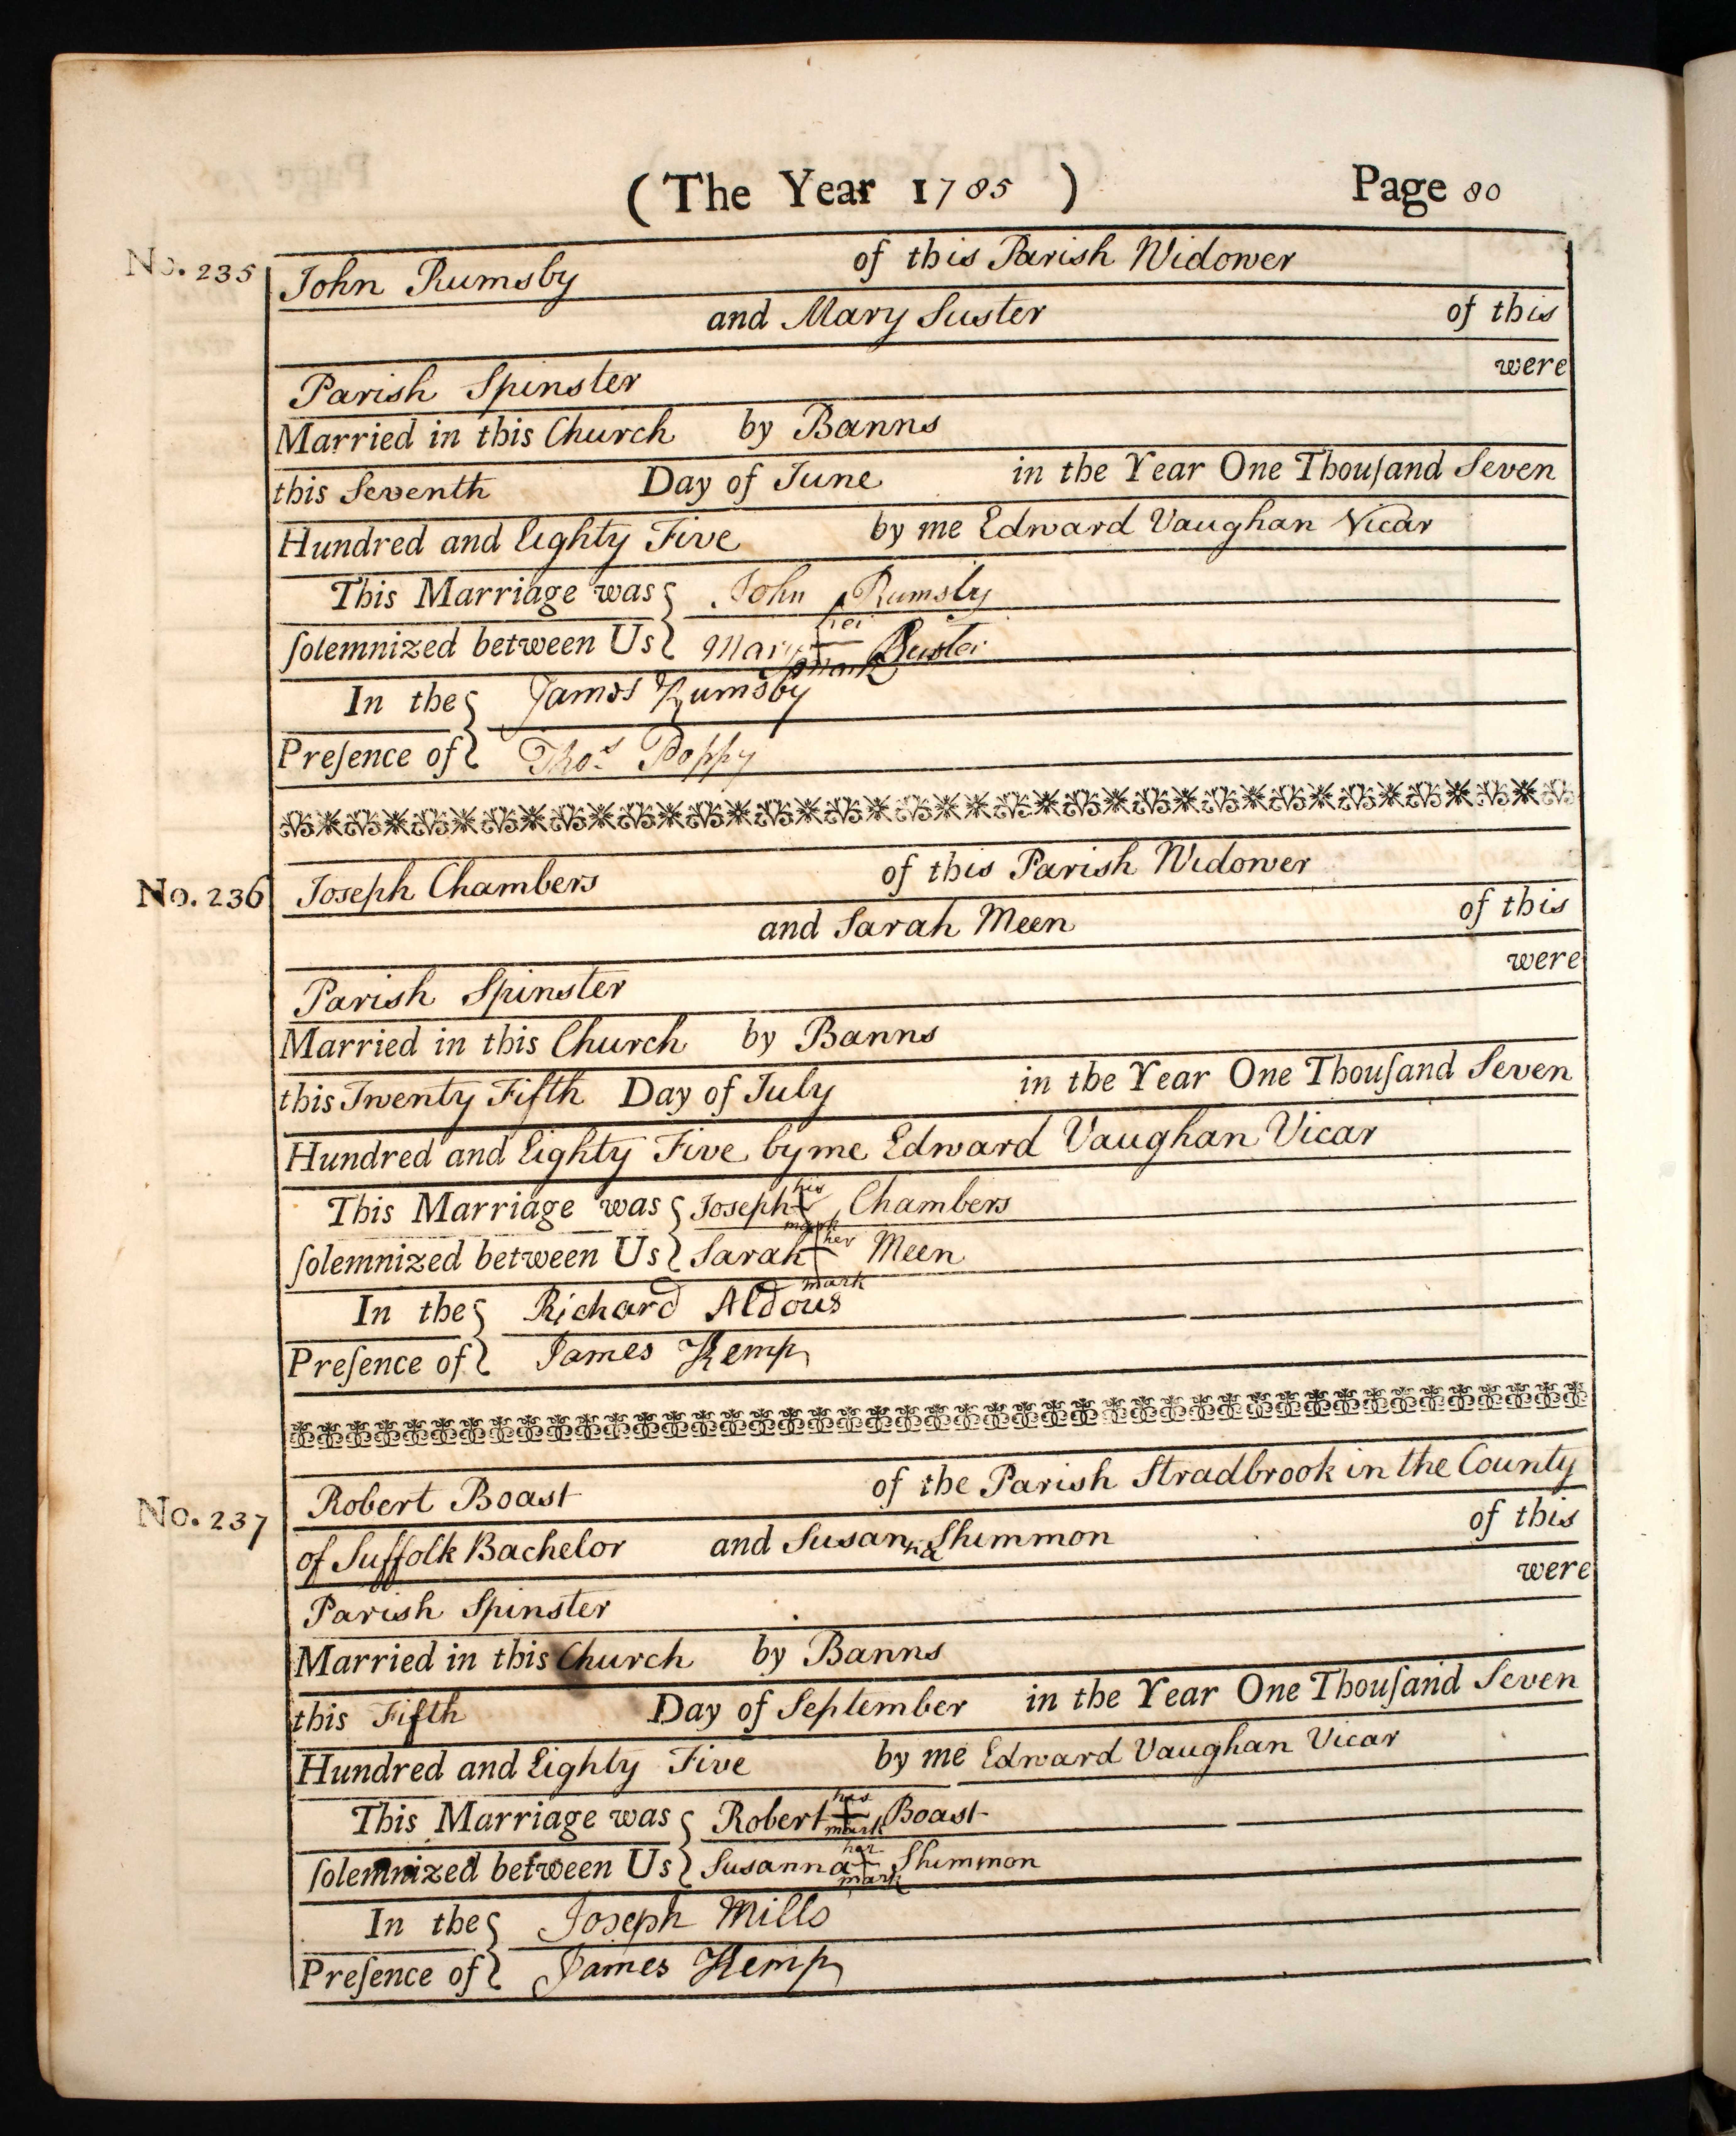 (The Year 1785 ) Page 80
No. 235 John Rumsby of this Parish Widower
and Mary Suster of this
Parish Spinster were
Married in this Church by Banns
this Seventh Day of June in the Year One Thouſand Seven
Hundred and Eighty Five by me Edward Vaughan Vicar
This Marriage was John Rumsby
ſolemnized between Us Mary her mark
In the James Rumsby
Preſence of Thos Poppy
No. 236 Joseph Chambers of this Parish Widower
and Sarah Meen of this
Parish Spinster were
Married in this Church by Banns
this Twenty Fifth Day of July in the Year One Thouſand Seven
Hundred and Eighty Five by me Edward Vaughan Vicar
This Marriage was Joseph his mark Chambers
ſolemnized between Us Sarah her mark Meen
In the Richard Aldous
Preſence of James Kemp
No. 237 Robert Boast of the Parish Stradbrook in the County
of Suffolk Bachelor and Susanna Shimmon of this
Parish Spinster were
Married in this Church by Banns
this Fifth Day of September in the Year One Thouſand Seven
Hundred and Eighty Five by me Edward Vaughan Vicar
This Marriage was Robert his mark Boast
ſolemnized between Us Susanna her mark Shimmon
In the Joseph Mills
Preſence of James Kemp